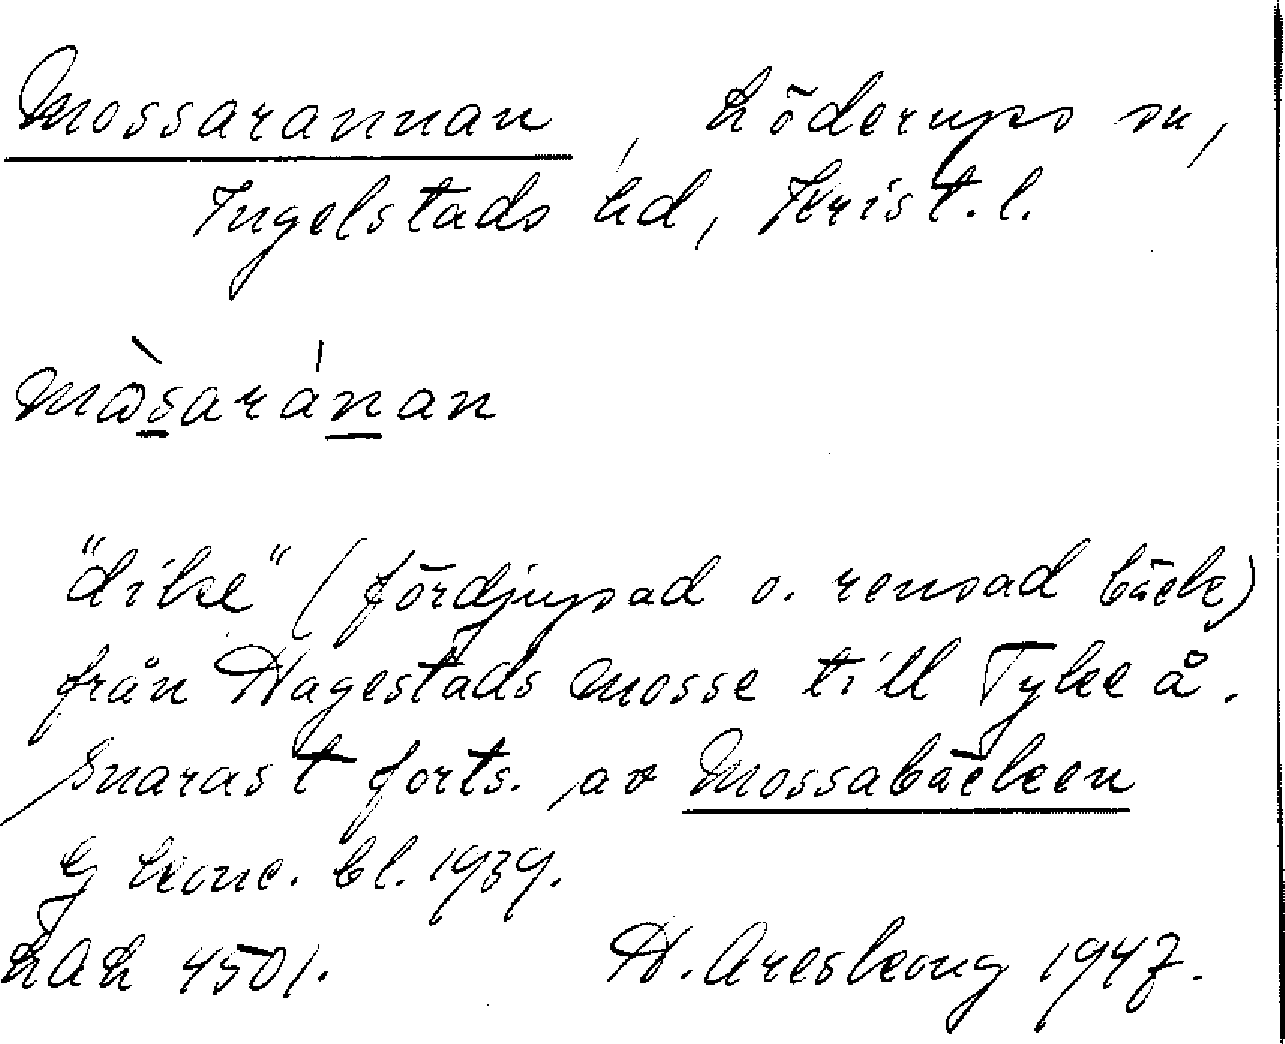 Mossarannan, Löderups sn,
Ingelstads hd, Krist. l.
mòsaránan
"dike" (fördjupad o. rensad bäck)
från Hagestads mosse till Tyke å.
Snarast forts. av Mossabäcken
Ej konc. bl. 1939.
LAL 4501. H. Areskoug 1947.